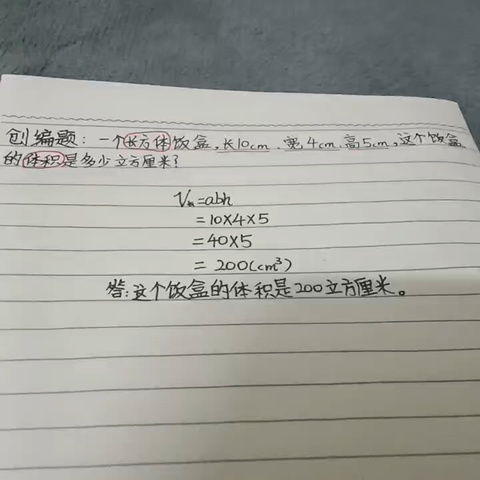 创编题：一个长方体饭盒，长10cm、宽4cm、高5cm，这个饭盒
的体积是多少立方厘米？
V长=abh
=10×4×5
=40×5
=200(cm³)
答：这个饭盒的体积是200立方厘米。